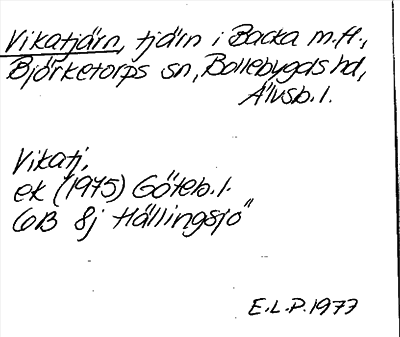 Vikatjärn, tjärn i Backa m.fl.,
Björketorps sn, Bollebygds hd,
Älvsb. l.
Vikatj,
ek (1975) Göteb. l.
6B 8j Hällingsjö"
E.L.P. 1977